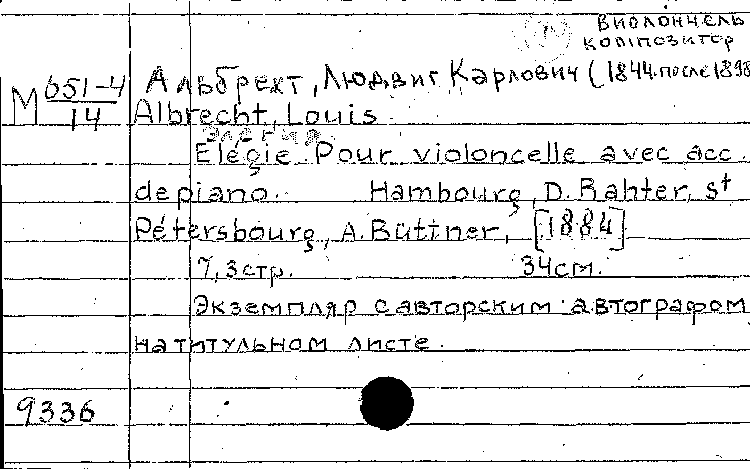 виолончель
композитор
Альбрехт, Людвиг Карлович (1844-после 1898
М 651-4/14
Albrecht, Louis
Элегия.
Elégie. Pour violoncelle avec acc.
de piano. Hambourg, D. Rahter, St
Pétersbourg, A. Büttner, [1884]
7, 3 стр. 34 см.
Экземпляр с авторским автографом
на титульном листе.
9336